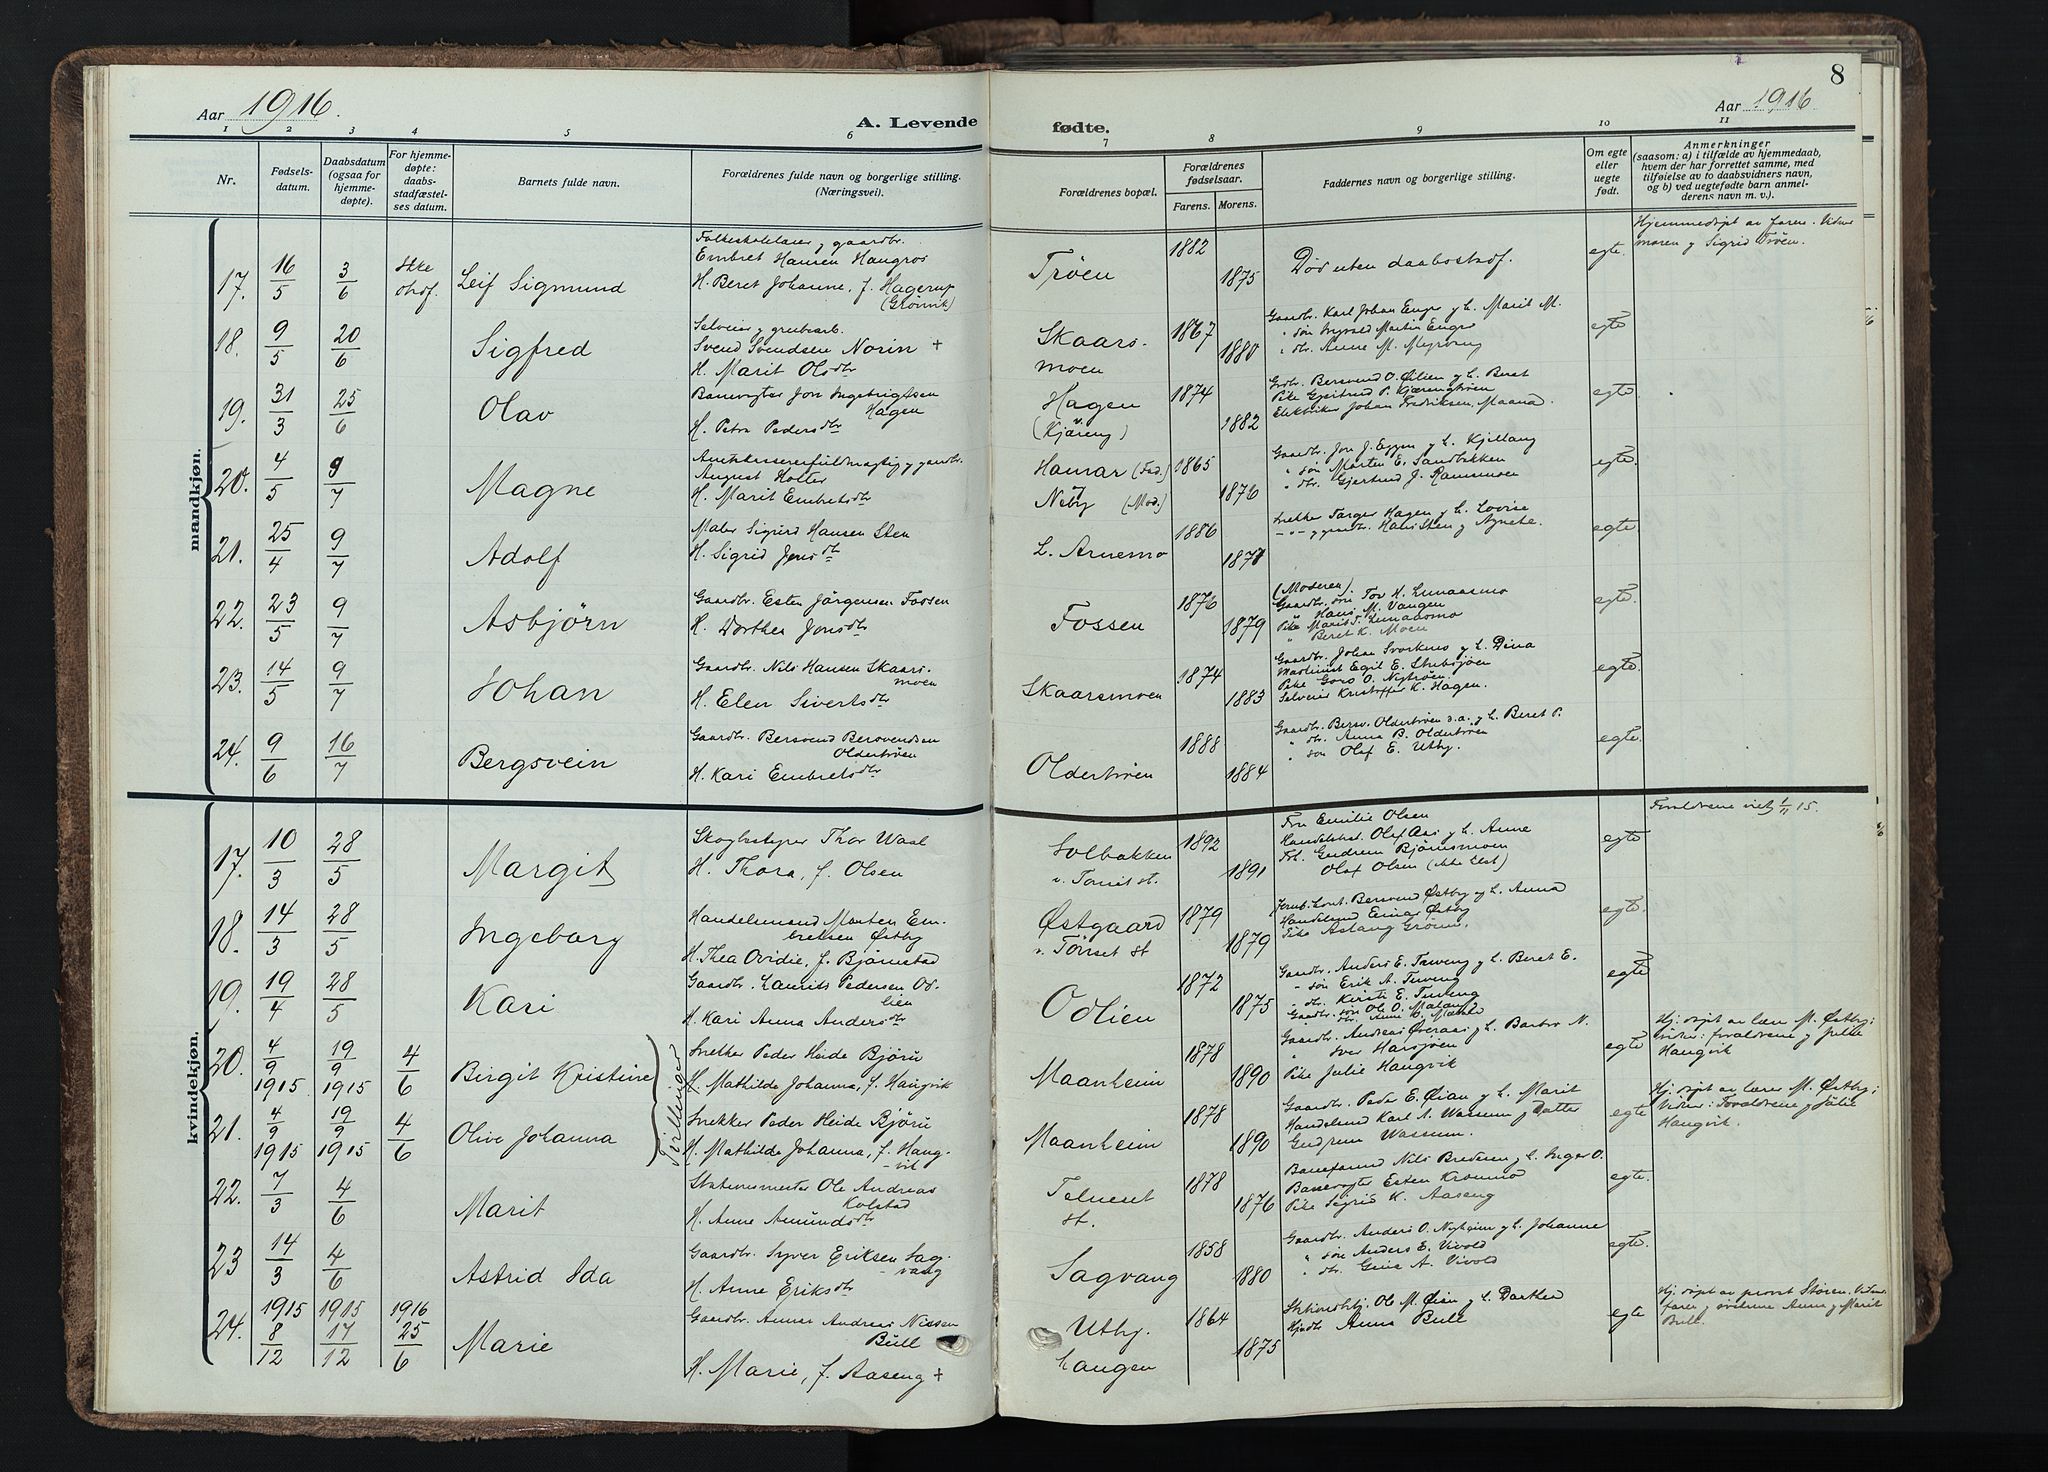 8
Aar 1916.
A. Levende
fødte.
Aar 1916
1 2 3 4 5 6 7 8 9 10 11
Nr.
Fødsels-
datum.
Daabsdatum
(ogsaa for
hjemme-
døpte).
For hjemme-
døpte:
daabs-
stadfæstel-
ses datum.
Barnets fulde navn.
Forældrenes fulde navn og borgerlige stilling.
(Næringsvei).
Forældrenes bopæl.
Forældrenes
fødselsaar.
Farens. Morens.
Faddernes navn og borgerlige stilling.
Om egte
eller
uegte
født.
Anmerkninger
(saasom: a) i tilfælde av hjemmedaab,
hvem der har forrettet samme, med
tilføielse av to daabsvidners navn,
og b) ved uegtefødte barn anmel-
derens navn m. v.).
mandkjøn.
17. 16/5 3/6 Ikke stadf. Leif Sigmund
Folkeskolelærer og gaardbr.
Embret Hansen Haugros
H. Beret Johanne, f. Hagerup
(Grønvik)
Trøen 1882 1875
Død uten daabsstadf.
egte.
Hjemmedøpt av faren. Vidner
moren og Sigrid Trøen.
18. 9/5 20/6 Sigfred
Selveier og grubearb.
Svend Svendsen Norin +
H. Marit Olsdtr
Skaars-
moen
1867 1880
Gaardbr. Karl Johan Enger og h. Marit M.
" søn Martin Enger
" dtr. Anne M. Myrvang
egte
19. 31/3 25/6 Olav
Banevogter Jon Ingebrigtsen
Hagen
H. Petra Pedersdtr
Hagen
(v. Kjæreng)
1874 1882
Grdbr. Bersvend O. Øilien og h. Beret
Pike Gjertrud P. Kjærengtrøen
Elektriker Johan Fredriksen, Maana.
egte.
20. 4/5 9/7 Magne
Amtskassererfuldmægtig og gaardbr.
August Holter
H. Marit Embretsdtr
Hamar (Fad.)
Neby (Mod.)
1865 1876
Gaardbr. Jon J. Eggen og h. Kjellaug
" søn Morten E. Sandbakken
" dtr. Gjertrud J. Ramsmoen
egte.
21. 25/4 9/7 Adolf
Maler Sigurd Hansen Sten
H. Sigrid Jonsdtr
L. Arnemo 1886 1871
Snekker Torger Hagen og h. Lovise
-"- og gaardbr. Hans Sten og Agnete.
egte
22. 23/5 9/7 Asbjørn
Gaardbr. Esten Jørgensen Fossen
H. Dorthea Jonsdtr
Fossen 1876 1879
(Moderen)
Gaardbr. søn Tov H. Lunaasmo
" Hans M. Vangen
Pike Marit T. Lunaasmo
" Beret K. Moen
egte.
23. 14/5 9/7 Johan
Gaardbr. Nils Hansen Skaars-
moen
H. Elen Sivertsdtr
Skaarsmoen 1874 1883
Gaardbr. Johan Svorknes og h. Dina
Maskinist Egil E. Stubsjøen
Pike Goro O. Nytrøen.
Selveier Kristoffer K. Hagen.
egte
24. 9/6 16/7 Bergsvein
Gaardbr. Bersvend Bersvendsen
Oldertrøen
H. Kari Embretsdtr
Oldertrøen 1888 1884
Gaardbr. Bersv. Oldertrøen s.a. og h. Beret P.
" dtr. Anna B. Oldertrøen
" søn Olaf E. Utby.
egte.
kvindekjøn.
17. 10/3 28/5 Margit
Skogbestyrer Thor Waal
H. Thora, f. Olsen
Solbakken
v. Tønset st.
1892 1891
Fru Emilie Olsen
Handelsbest. Olaf Aas og h. Anne
Frk. Gudrun Bjørnsmoen
Olaf Olsen (ikke tilst)
egte
Forældrene viet 1/11 15.
18. 14/3 28/5 Ingeborg
Handelsmand Morten Em-
bretsen Østby
H. Thea Ovidie, f. Bjørnstad
Østgaard
v. Tønset st
1879 1879
Jernb. kont. Bersvend Østby og h. Anna
Handelsmd Einar Østby
Pike Aslaug Grønn.
egte.
19. 19/4 28/5 Kari
Gaardbr. Laurits Pedersen Od-
lien
H. Kari Anna Andersdtr
Odlien 1872 1875
Gaardbr. Anders E. Tuveng og h. Beret E.
" søn Erik A. Tuveng
" dtr. Kirsti E. Tuveng
Gaardbr. søn Ole O. Maland
egte
20. 4/9 1915 19/9 1915 4/6 Birgit Kristine
Tvillinger
Snekker Peder Heide Bjøru
H. Mathilde Johanna, f. Haugvik
Maanheim 1878 1890
Gaardbr. Andreas Øveraas og h. Barbro N.
" Iver Harsjøen
Pike Julie Haugvik
egte
Hj. døpt av lære M. Østby;
vidner: forældrene og Julie
Haugvik
21. 4/9 1915 19/9 1915 4/6 Olive Johanna
Snekker Peder Heide Bjøru
H. Mathilde Johanna, f. Haug-
vik
Maanheim 1878 1890
Gaardbr. Peder E. Øian og h. Marit
Handelsmd Karl A. Wassum og datter
Gudrun Wassum.
egte
Hj. døpt av lærer M. Østby;
Vidner: Forældrene og Julie
Haugvik.
22. 7/3 4/6 Marit
Stationsmester Ole Andreas
Kolstad
H. Anne Amundsdtr
Telneset
st.
1878 1876
Baneformd Nils Bredesen og h. Inger O.
Banevogter Esten Kroemo
Pike Sigrid K. Aaseng
egte.
23 14/3 4/6 Astrid Ida
Gaardbr. Syver Eriksen Sag-
vang
H. Anne Eriksdtr
Sagvang 1858 1880
Gaardbr. Anders O. Nyheim og h. Johanne
" søn Anders E. Vivold
" dtr. Guri A. Vivold
egte.
24. 1915 8/12 1915 17/12 1916 25/6 Marie
Gaardbr. Annar Andreas Nissen
Bull
H. Marie, f. Aaseng +
Utby.
Haugen
1864 1875
Ole M. Øian og h. Dorthea
Anna Bull
egte
Hj. døpt av provst Støren. Vidner:
farer og søstrene Anna og Marit
Bull.